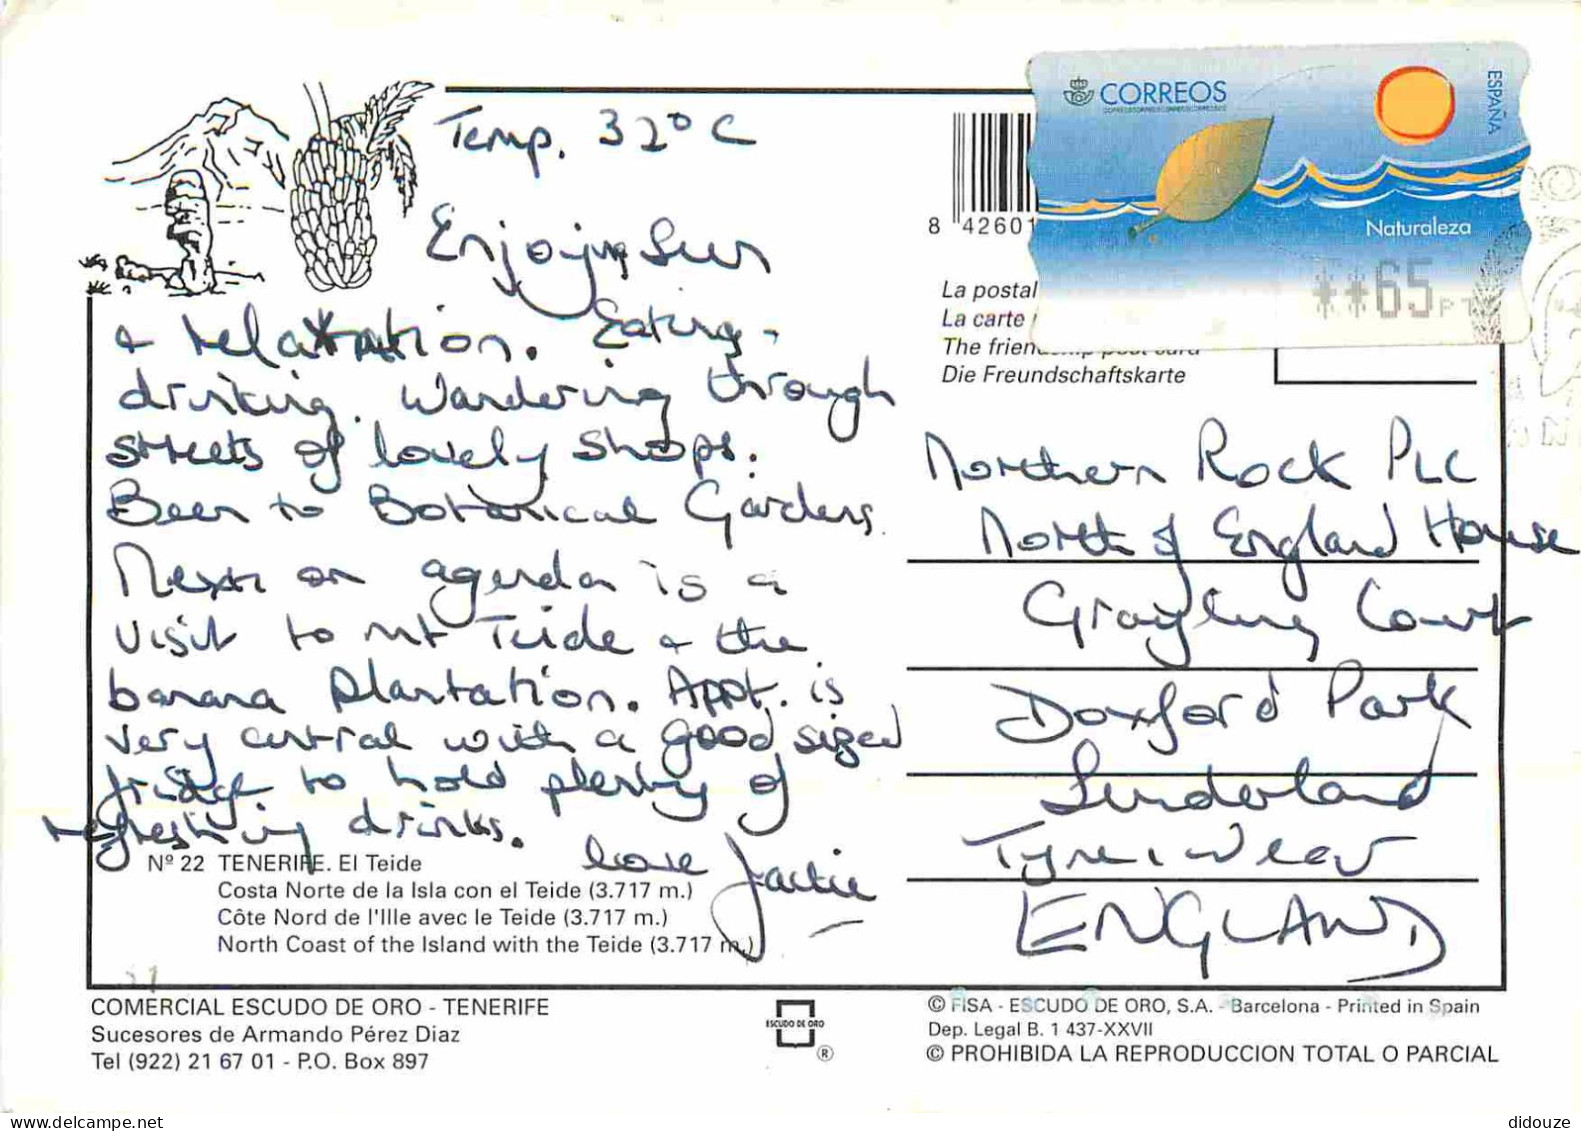 Temp. 32°C
Enjoying Sun
& relaxation. Eating,
drinking. Wandering through
streets of lovely shops.
Been to Botanical Gardens.
Next on agenda is a
visit to Mt Teide & the
banana plantation. Appt. is
very central with a good sized
fridge to hold plenty of
refreshing drinks.
love Jackie
Nº 22 TENERIFE. El Teide
Costa Norte de la Isla con el Teide (3.717 m.)
Côte Nord de l'Ille avec le Teide (3.717 m.)
North Coast of the Island with the Teide (3.717 m.)
COMERCIAL ESCUDO DE ORO - TENERIFE
Sucesores de Armando Pérez Diaz
Tel (922) 21 67 01 - P.O. Box 897
ESCUDO DE ORO
®
CORREOS
ESPAÑA
Naturaleza
**65 PT
8 42601
La postal
La carte
The friendship post card
Die Freundschaftskarte
Northern Rock PLC
North of England House
Grayling Court
Doxford Park
Sunderland
Tyne & Wear
ENGLAND
© FISA - ESCUDO DE ORO, S.A. - Barcelona - Printed in Spain
Dep. Legal B. 1 437-XXVII
© PROHIBIDA LA REPRODUCCION TOTAL O PARCIAL
didouze